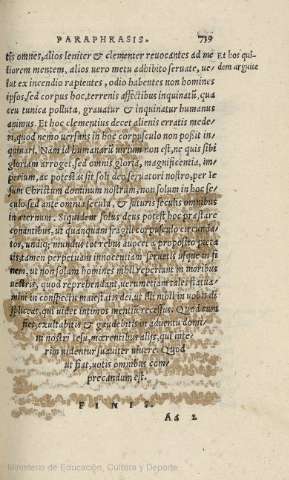 PARAPHRASIS. 739
tis omnes, alios leniter & clementer reuocantes ad me
liorem mentem, alios uero metu adhibito seruate, ue-
lut ex incendio rapientes, odio habentes non homines
ipsos, sed corpus hoc, terrenis affectibus inquinatũ, qua
ceu tunica polluta, grauatur & inquinatur humanus
animus. Et hoc clementius decet alienis erratis mede-
ri, quod nemo uersans in hoc corpusculo non possit in-
quinari. Nam id humanarũ uirium non est, ne quis sibi
gloriam arroget, sed omnis gloria, magnificentia, im-
perium, ac potestas sit soli deo seruatori nostro, per Ie-
sum Christum dominum nostrum, non solum in hoc se-
culo sed ante omnia secula, & futuris seculis omnibus
in æternum. Siquidem solus deus potest hoc præstare
omnibus, ut quanquam fragili corpusculo circundа-
tos, undiq; mundus tot rebus auocet a proposito pieta
tis, tamen perpetuam innocentiam seruetis usque ad fi
nem, ut non solum homines nihil reperiant in moribus
uestris, quod reprehendant, uerumetiam tales statua-
mini in conspectu maiestatis dei, ut nihil in uobis
displiceat, qui uidet intimos mentis recessus. Quod cum
fiet, exultabitis & gaudebitis in aduentu domi-
ni nostri Iesu, mœrentibus alijs, qui inte-
rim uidentur suauiter uiuere. Quod
ut fiat, uotis omnibus com
precandum est.
FINIS.
Aa 2
Et hos qui-
dem arguite
Ministerio de Educación, Cultura y Deporte